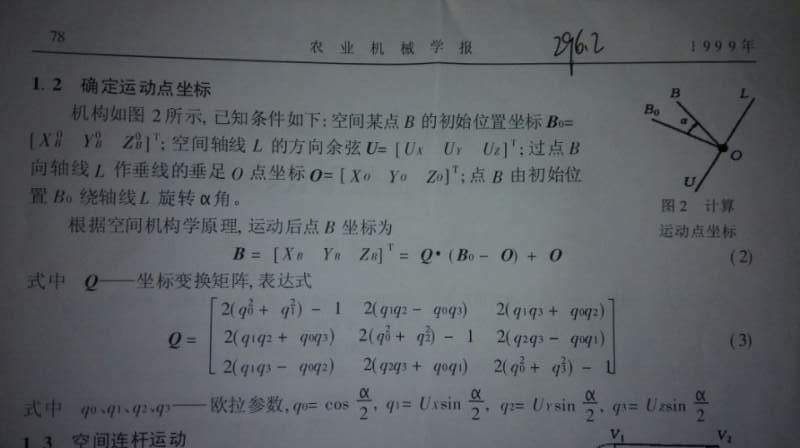 78 农业机械学报 296.2 1999年
1.2 确定运动点坐标
机构如图2所示, 已知条件如下: 空间某点 B 的初始位置坐标 B₀=
[X_B^0 Y_B^0 Z_B^0]^T; 空间轴线 L 的方向余弦 U= [U_X U_Y U_Z]^T; 过点 B
向轴线 L 作垂线的垂足 O 点坐标 O= [X_O Y_O Z_O]^T; 点 B 由初始位
置 B₀ 绕轴线 L 旋转 α 角。
B
L
B₀
α
O
U
图2 计算
运动点坐标
根据空间机构学原理, 运动后点 B 坐标为
B = [X_B Y_B Z_B]^T = Q• (B₀ - O) + O (2)
式中 Q——坐标变换矩阵, 表达式
2(q₀² + q₁²) - 1 2(q₁q₂ - q₀q₃) 2(q₁q₃ + q₀q₂)
Q = 2(q₁q₂ + q₀q₃) 2(q₀² + q₂²) - 1 2(q₂q₃ - q₀q₁) (3)
2(q₁q₃ - q₀q₂) 2(q₂q₃ + q₀q₁) 2(q₀² + q₃²) - 1
式中 q₀、q₁、q₂、q₃——欧拉参数, q₀= cos α/2, q₁= U_X sin α/2, q₂= U_Y sin α/2, q₃= U_Z sin α/2
1.3 空间连杆运动
V₁ V₁